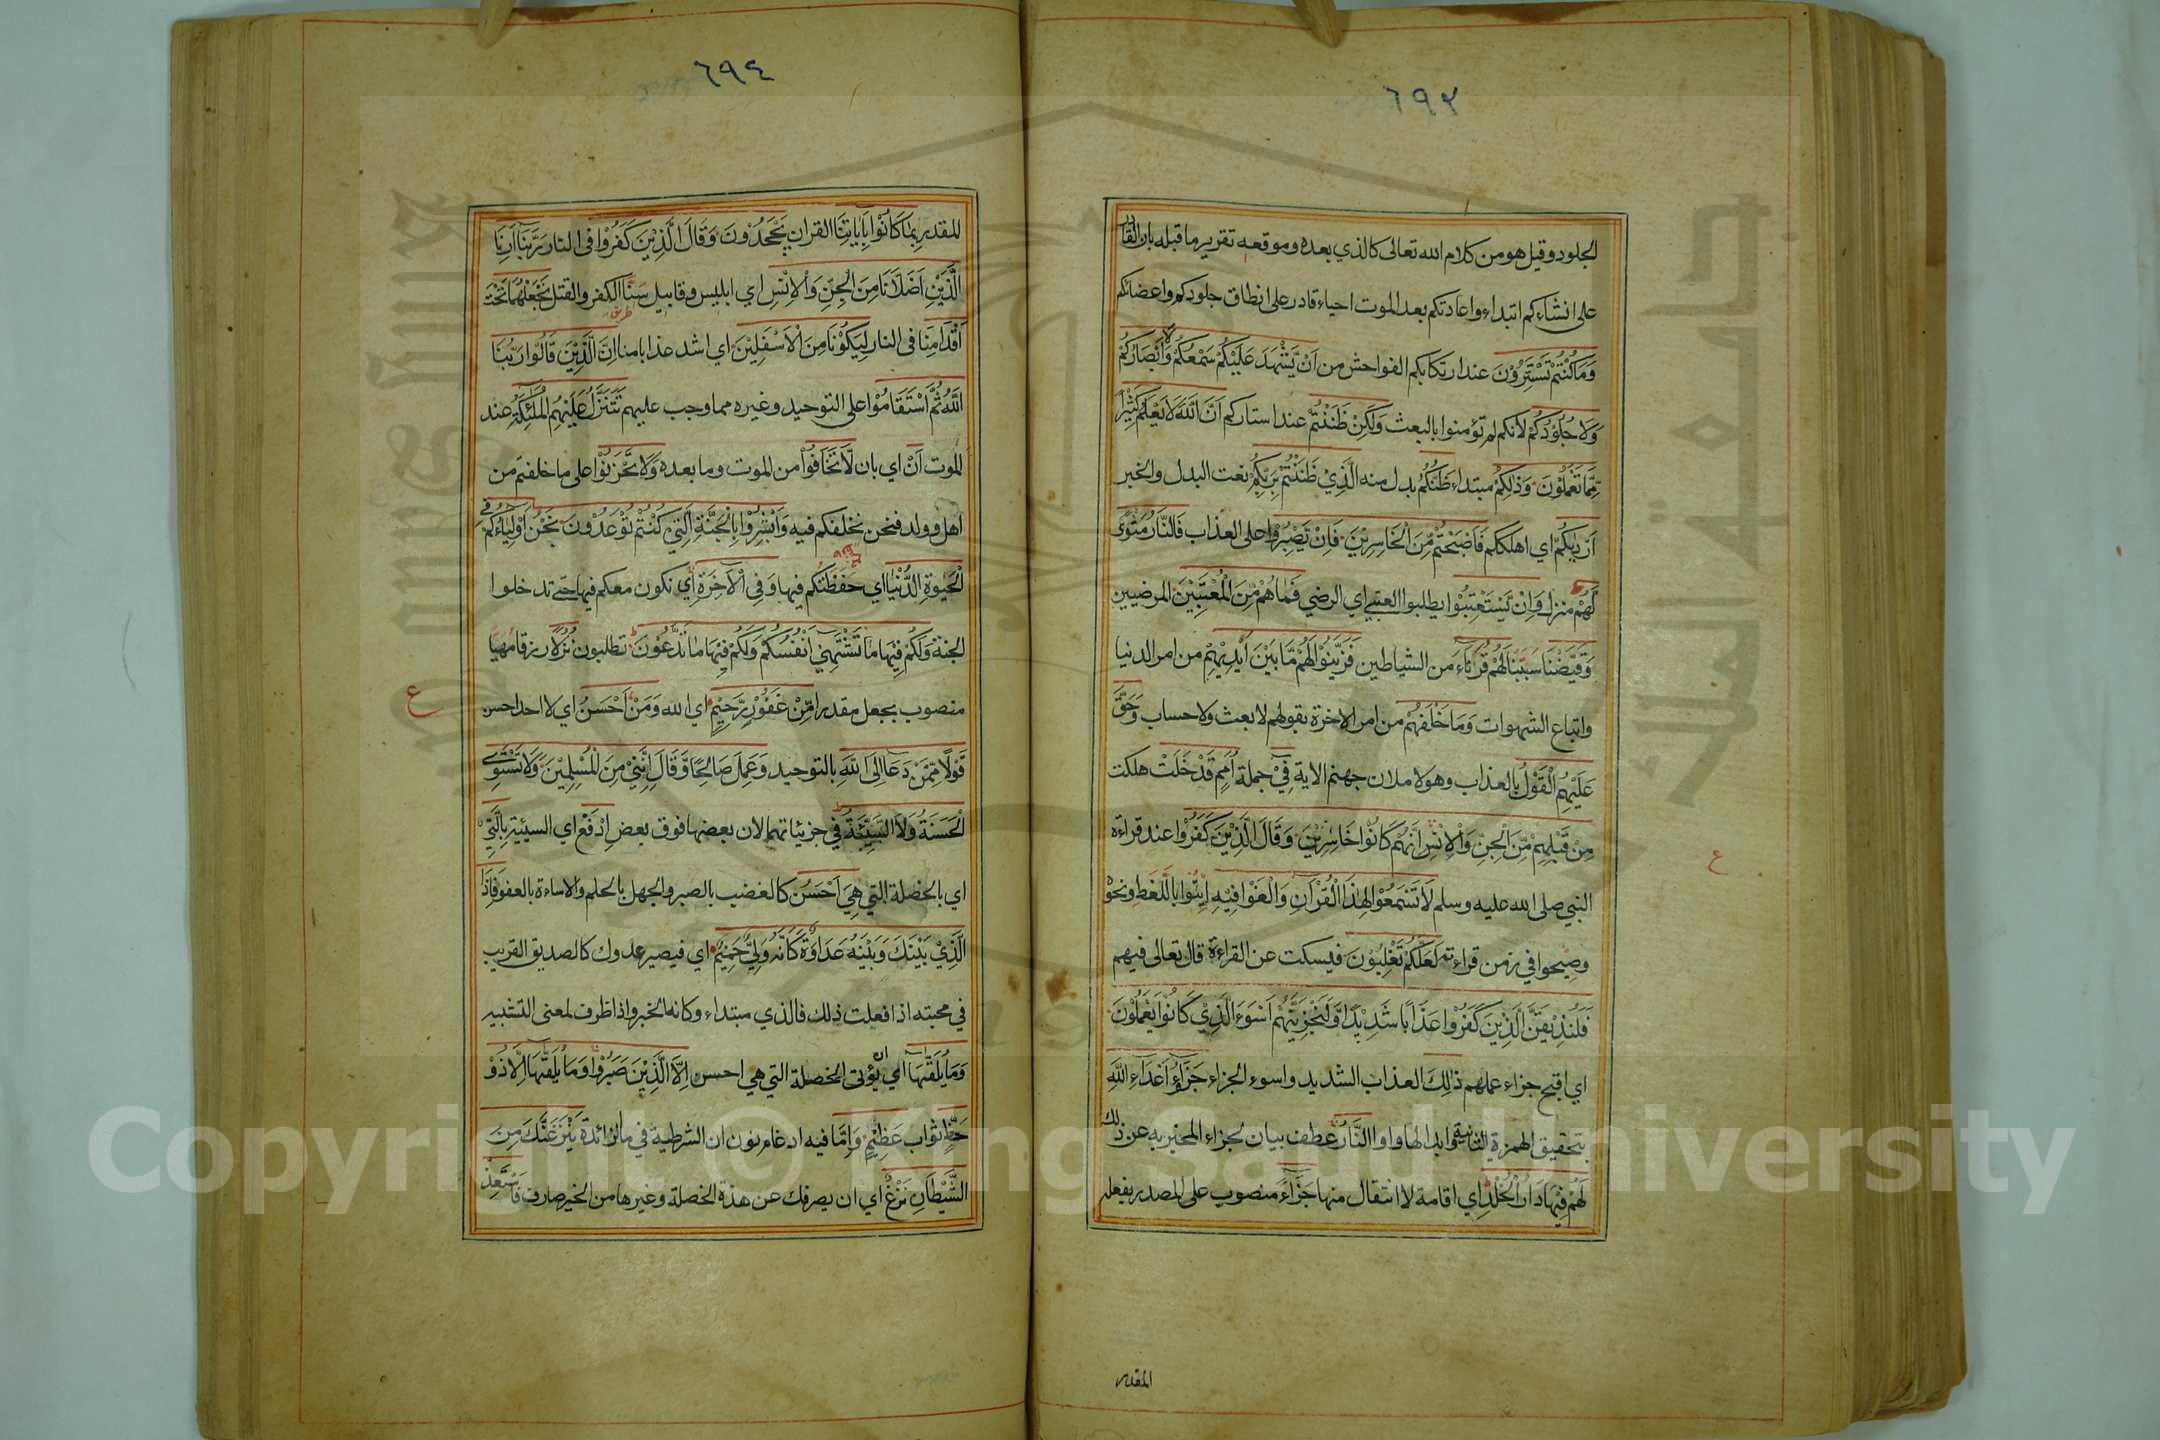 ٦٩٣
الجلود وقيل هو من كلام الله تعالى كالذي بعده وموقعه تقرير ما قبله بان القادر
على انشاءكم ابتداء واعادتكم بعد الموت احياء قادر على انطاق جلودكم واعضائكم
وَمَا كُنْتُمْ تَسْتَتِرُوْنَ عند ارتكابكم الفواحش من اَنْ يَّشْهَدَ عَلَيْكُمْ سَمْعُكُمْ وَلَا اَبْصَارُكُمْ
وَلَا جُلُوْدُكُمْ لأنكم لم تؤمنوا بالبعث وَلٰكِنْ ظَنَنْتُمْ عند استتاركم اَنَّ اللّٰهَ لَا يَعْلَمُ كَثِيْرًا
مِّمَّا تَعْمَلُوْنَ وَذٰلِكُمْ مبتداء ظَنُّكُمُ بدل منه الَّذِيْ ظَنَنْتُمْ بِرَبِّكُمْ نعت البدل والخبر
اَرْدٰىكُمْ اي اهلككم فَاَصْبَحْتُمْ مِّنَ الْخَاسِرِيْنَ فَاِنْ يَّصْبِرُوْا على العذاب فَالنَّارُ مَثْوًى
لَّهُمْ منزل وَاِنْ يَّسْتَعْتِبُوْا يطلبوا العتبى اي الرضي فَمَا هُمْ مِّنَ الْمُعْتَبِيْنَ المرضيين
وَقَيَّضْنَا سَبَّبنا لَهُمْ قُرَنَاءَ من الشياطين فَزَيَّنُوْا لَهُمْ مَّا بَيْنَ اَيْدِيْهِمْ من امر الدنيا
واتباع الشهوات وَمَا خَلْفَهُمْ من امر الاخرة بقولهم لا بعث ولا حساب وَحَقَّ
عَلَيْهِمُ الْقَوْلُ بالعذاب وهو لاملان جهنم الاية فِيْ جملة اُمَمٍ قَدْ خَلَتْ هلكت
مِنْ قَبْلِهِمْ مِّنَ الْجِنِّ وَالْاِنْسِ اِنَّهُمْ كَانُوْا خَاسِرِيْنَ وَقَالَ الَّذِيْنَ كَفَرُوْا عند قراءة
النبي صلى الله عليه وسلم لَا تَسْمَعُوْا لِهٰذَا الْقُرْاٰنِ وَالْغَوْا فِيْهِ ايتوا باللغط ونحوه
وصيحوا في زمن قراءته لَعَلَّكُمْ تَغْلِبُوْنَ فيسكت عن القراءة قال تعالى فيهم
فَلَنُذِيْقَنَّ الَّذِيْنَ كَفَرُوْا عَذَابًا شَدِيْدًا وَّلَنَجْزِيَنَّهُمْ اَسْوَءَ الَّذِيْ كَانُوْا يَعْمَلُوْنَ
اي اقبح جزاء عملهم ذٰلِكَ العذاب الشديد واسوء الجزاء جَزَاءُ اَعْدَاءِ اللّٰهِ
بتحقيق الهمزة الثانية وابدالها واوا النَّارُ عطف بيان لجزاء المخبر به عن ذلك
لَهُمْ فِيْهَا دَارُ الْخُلْدِ اي اقامة لا انتقال منها جَزَاءً منصوب على المصدر بفعله
ع
المقدر
٦٩٤
للمقدر بِمَا كَانُوْا بِاٰيَاتِنَا القران يَجْحَدُوْنَ وَقَالَ الَّذِيْنَ كَفَرُوْا فى النار رَبَّنَا اَرِنَا
الَّذَيْنِ اَضَلَّانَا مِنَ الْجِنِّ وَالْاِنْسِ اي ابليس وقابيل سَنّا الكفر والقتل نَجْعَلْهُمَا تَحْتَ
طريق
اَقْدَامِنَا فى النار لِيَكُوْنَا مِنَ الْاَسْفَلِيْنَ اي اشد عذابا منا اِنَّ الَّذِيْنَ قَالُوْا رَبُّنَا
اللّٰهُ ثُمَّ اسْتَقَامُوْا على التوحيد وغيره مما وجب عليهم تَتَنَزَّلُ عَلَيْهِمُ الْمَلٰئِكَةُ عند
الموت اَنْ اي بان لَّا تَخَافُوْا من الموت وما بعده وَلَا تَحْزَنُوْا على ما خلفتم من
اهل وولد فنحن نخلفكم فيه وَاَبْشِرُوْا بِالْجَنَّةِ الَّتِيْ كُنْتُمْ تُوْعَدُوْنَ نَحْنُ اَوْلِيَاؤُكُمْ فِي
الْحَيٰوةِ الدُّنْيَا اي حَفَظْنكم فيها وَفِي الْاٰخِرَةِ اي نكون معكم فيها حتى تدخلوا
الجنة وَلَكُمْ فِيْهَا مَا تَشْتَهِيْ اَنْفُسُكُمْ وَلَكُمْ فِيْهَا مَا تَدَّعُوْنَ تطلبون نُزُلًا رزقا مهيا
منصوب بجعل مقدرا مِّنْ غَفُوْرٍ رَّحِيْمٍ اي الله وَمَنْ اَحْسَنُ اي لا احد احسن
قَوْلًا مِّمَّنْ دَعَا اِلَى اللّٰهِ بالتوحيد وَعَمِلَ صَالِحًا وَّقَالَ اِنَّنِيْ مِنَ الْمُسْلِمِيْنَ وَلَا تَسْتَوِى
الْحَسَنَةُ وَلَا السَّيِّئَةُ في جزئياتهما لان بعضها فوق بعض اِدْفَعْ اي السيئية بِالَّتِيْ
اي بالخصلة التي هِيَ اَحْسَنُ كالغضب بالصبر والجهل بالحلم والاساءة بالعفو فَاِذَا
الَّذِيْ بَيْنَكَ وَبَيْنَهُ عَدَاوَةٌ كَاَنَّهُ وَلِيٌّ حَمِيْمٌ اي فيصير عدوك كالصديق القريب
في محبته اذا فعلت ذلك فالذي مبتداء وكانه الخبر واذا ظرف لمعنى التشبيه
وَمَا يُلَقّٰهَا اي يؤتى الخصلة التي هي احسن اِلَّا الَّذِيْنَ صَبَرُوْا وَمَا يُلَقّٰهَا اِلَّا ذُوْ
حَظٍّ ثواب عَظِيْمٍ وَاِمَّا فيه ادغام نون ان الشرطية في ما الزائدة يَنْزَغَنَّكَ مِنَ
الشَّيْطَانِ نَزْغٌ اي ان يصرفك عن هذة الخصلة وغيرها من الخير صارف فَاسْتَعِذْ
ع
Copyright © King Saud University